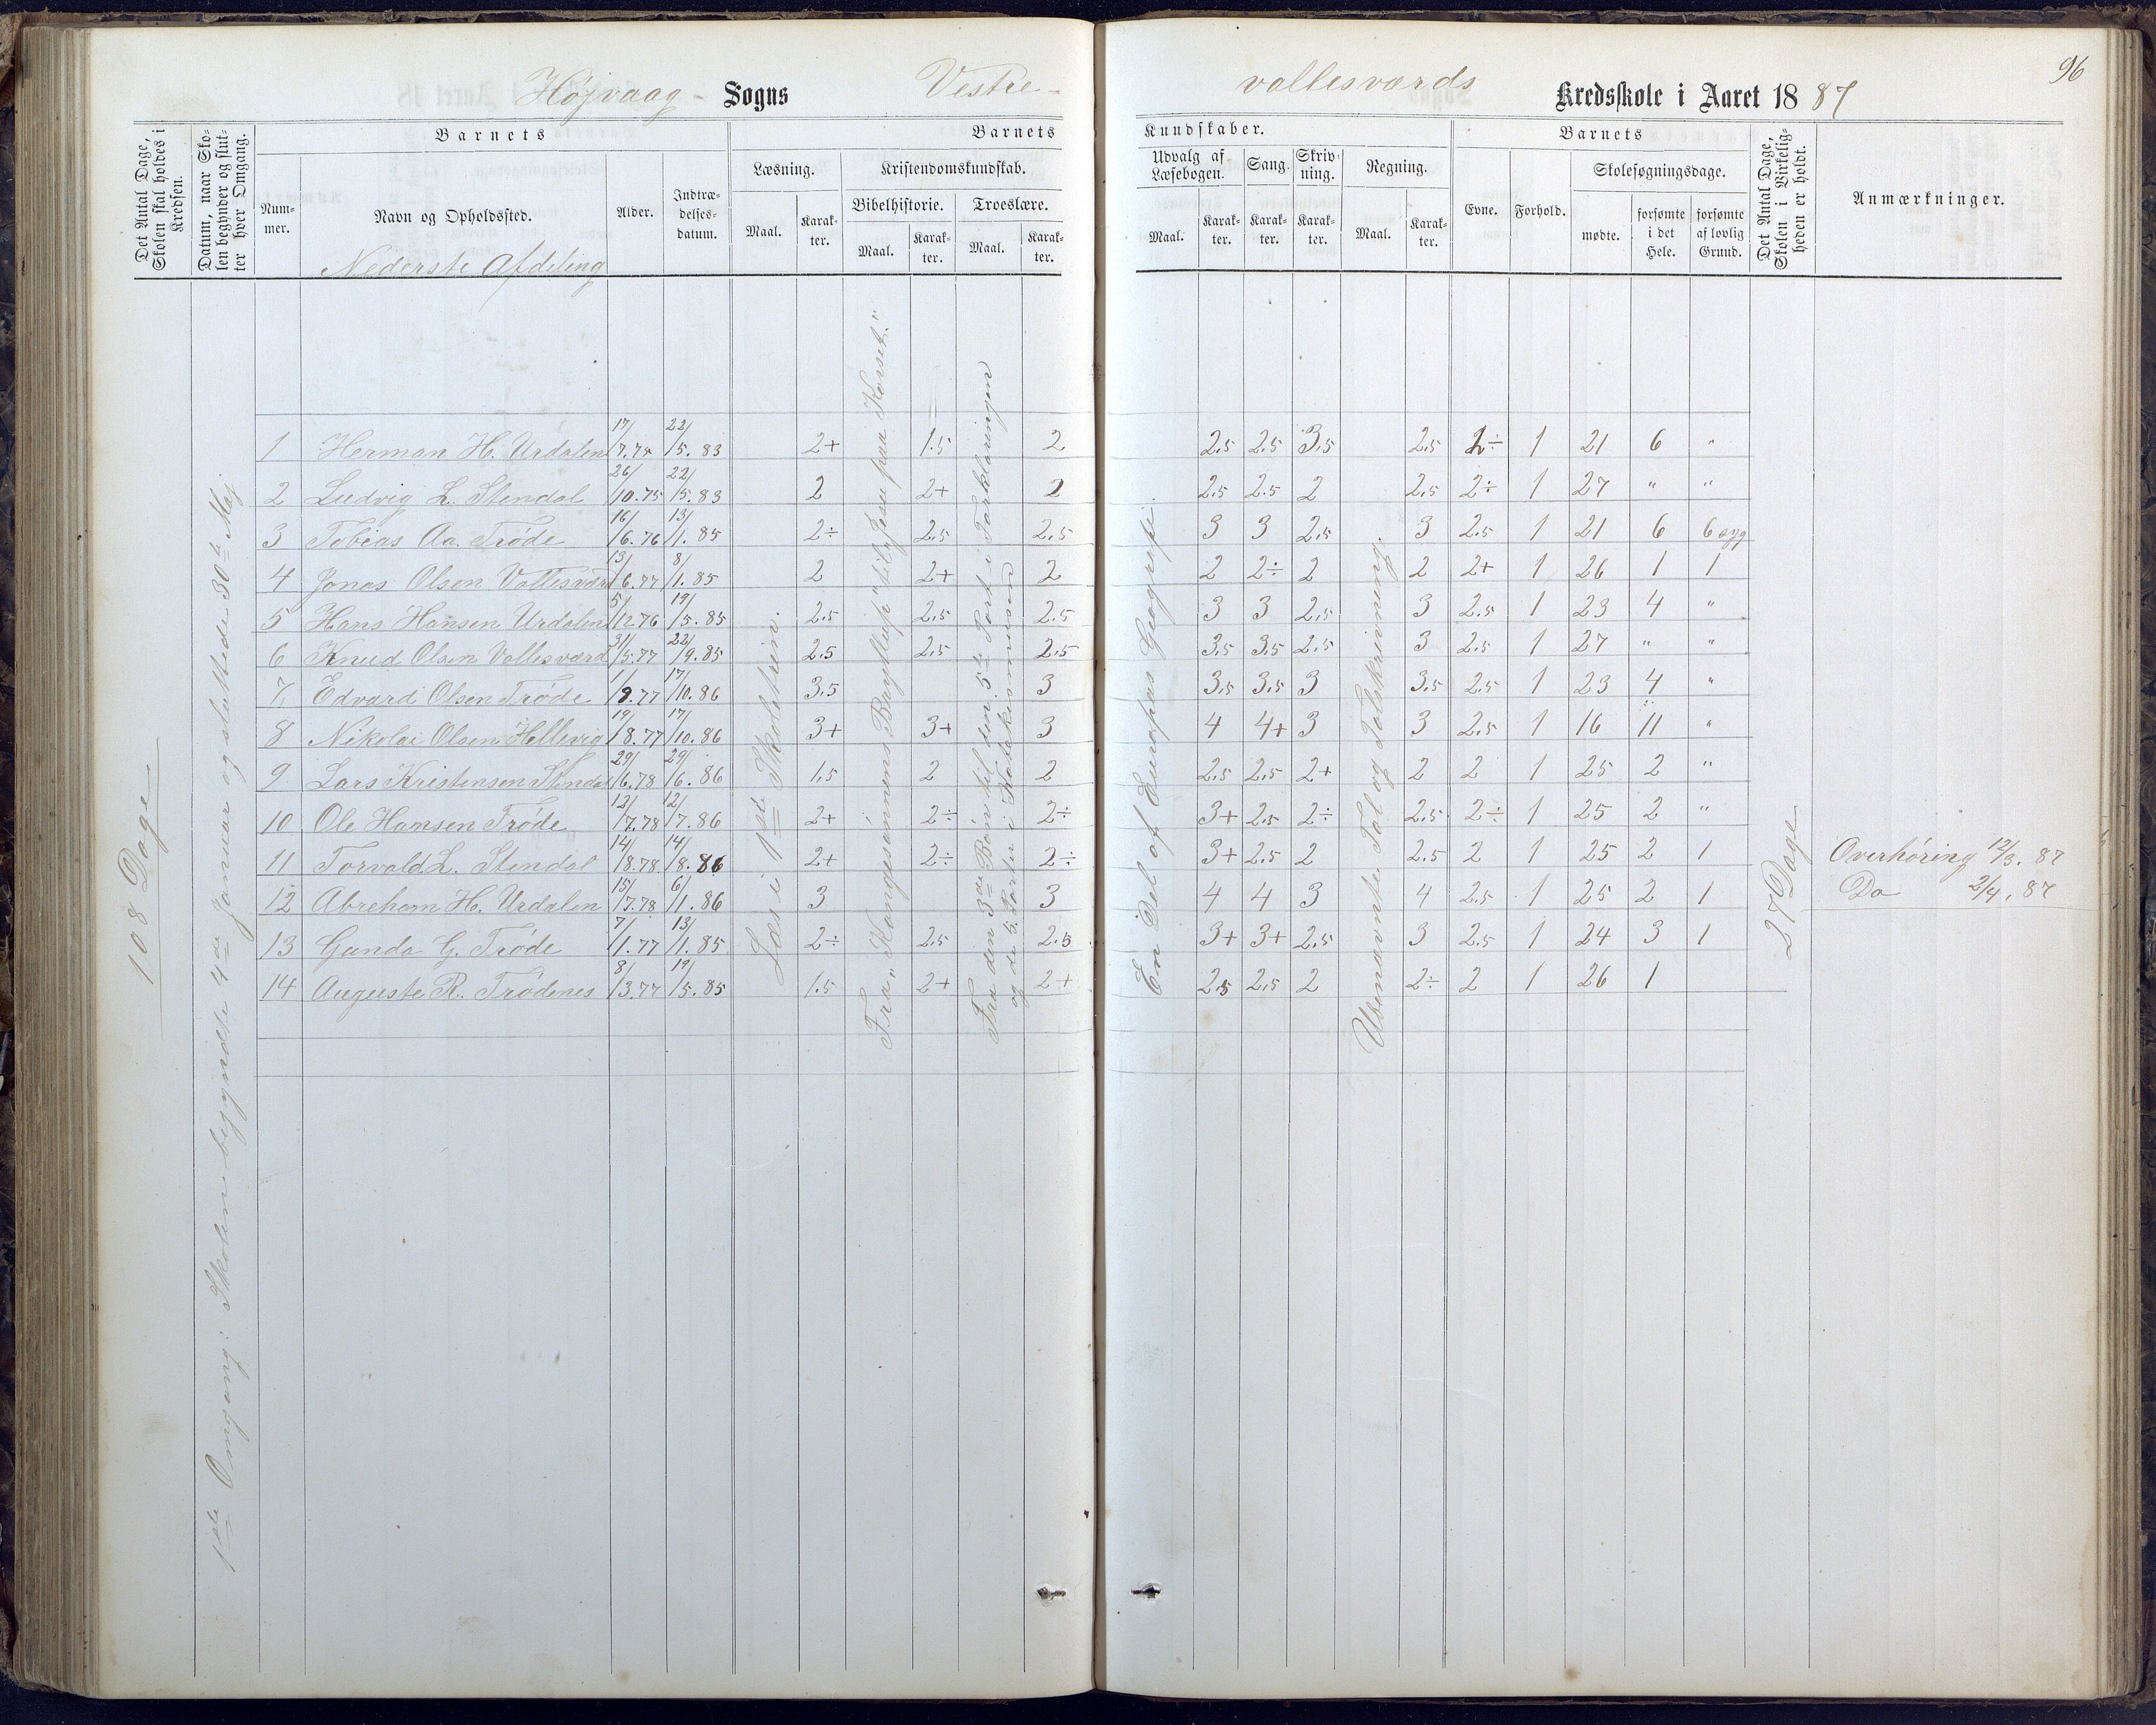 96
Højvaag - Sogns Vestre - vallesværds Kredsskole i Aaret 1887
Det Antal Dage, Skolen skal holdes i Kredsen.
Datum, naar Skolen begynder og slutter hver Omgang.
Barnets
Nummer.
Navn og Opholdssted.
Nederste Afdeling
Alder.
Indtrædelsesdatum.
Barnets
Læsning.
Maal.
Karakter.
Kristendomskundskab.
Bibelhistorie.
Maal.
Karakter.
Troeslære.
Maal.
Karakter.
Kundskaber.
Udvalg af Læsebogen.
Maal.
Karakter.
Sang.
Karakter.
Skrivning.
Karakter.
Regning.
Maal.
Karakter.
Barnets
Evne.
Forhold.
Skolesøgningsdage.
mødte.
forsømte i det Hele.
forsømte af lovlig Grund.
Det Antal Dage, Skolen i Virkeligheden er holdt.
Anmærkninger.
108 Dage
1ste Omgang: Skolen begyndte 4de Januar og sluttede 30te Maj
Læs i 1ste Skoletrin.
Fra "Kongesønnens Bryllup" til "Jesu paa Korset."
Fra den 3die Bøn til den 5te Part i Forklaringen
og de 5 Parter i Katekismusen
En Del af Europas Geografi.
Ubenævnte Tal og Talskrivning.
27 Dage
1 Herman H. Urdalen 17/7.74 22/5.83 2+ 1.5 2 2.5 2.5 3,5 2,5 2÷ 1 21 6 "
2 Ludvig L. Stendal 26/10.75 22/5.83 2 2+ 2 2.5 2.5 2 2,5 2÷ 1 27 " "
3 Tobias Aa. Trøde 16/6.76 13/1.85 2÷ 2.5 2.5 3 3 2,5 3 2.5 1 21 6 6 syg
4 Jonas Olsen Vallesværd 13/6.77 8/1.85 2 2+ 2 2 2÷ 2 2 2+ 1 26 1 1
5 Hans Hansen Urdalen 5/12 76 19/5.85 2.5 2.5 2.5 3 3 2,5 3 2.5 1 23 4 "
6 Knud Olsen Vallesværd 31/5.77 22/9.85 2.5 2.5 2.5 3,5 3,5 2.5 3 2.5 1 27 " "
7 Edvard Olsen Trøde 1/9.77 17/10.86 3.5 3 3,5 3,5 3 3,5 2.5 1 23 4 "
8 Nikolai Olsen Hellevig 19/8.77 17/10.86 3+ 3+ 3 4 4+ 3 3 2.5 1 16 11 "
9 Lars Kristensen Stendal 29/6.78 29/6.86 1.5 2 2 2.5 2,5 2+ 2 2 1 25 2 "
10 Ole Hansen Trøde 12/7.78 12/7.86 2+ 2÷ 2÷ 3+ 2.5 2÷ 2.5 2÷ 1 25 2 "
11 Torvald L. Stendal 14/8.78 14/8.86 2+ 2÷ 2÷ 3+ 2.5 2 2.5 2 1 25 2 1 Overhøring 12/3. 87
12 Abreham H. Urdalen 15/7.78 6/1.86 3 3 4 4 3 4 2.5 1 25 2 1 Do 2/4. 87
13 Gunda G. Trøde 7/1.77 13/1.85 2÷ 2.5 2.5 3+ 3+ 2,5 3 2.5 1 24 3 1
14 Auguste R. Trødenes 8/3.77 19/5.85 1.5 2+ 2+ 2.5 2,5 2 2÷ 2 1 26 1